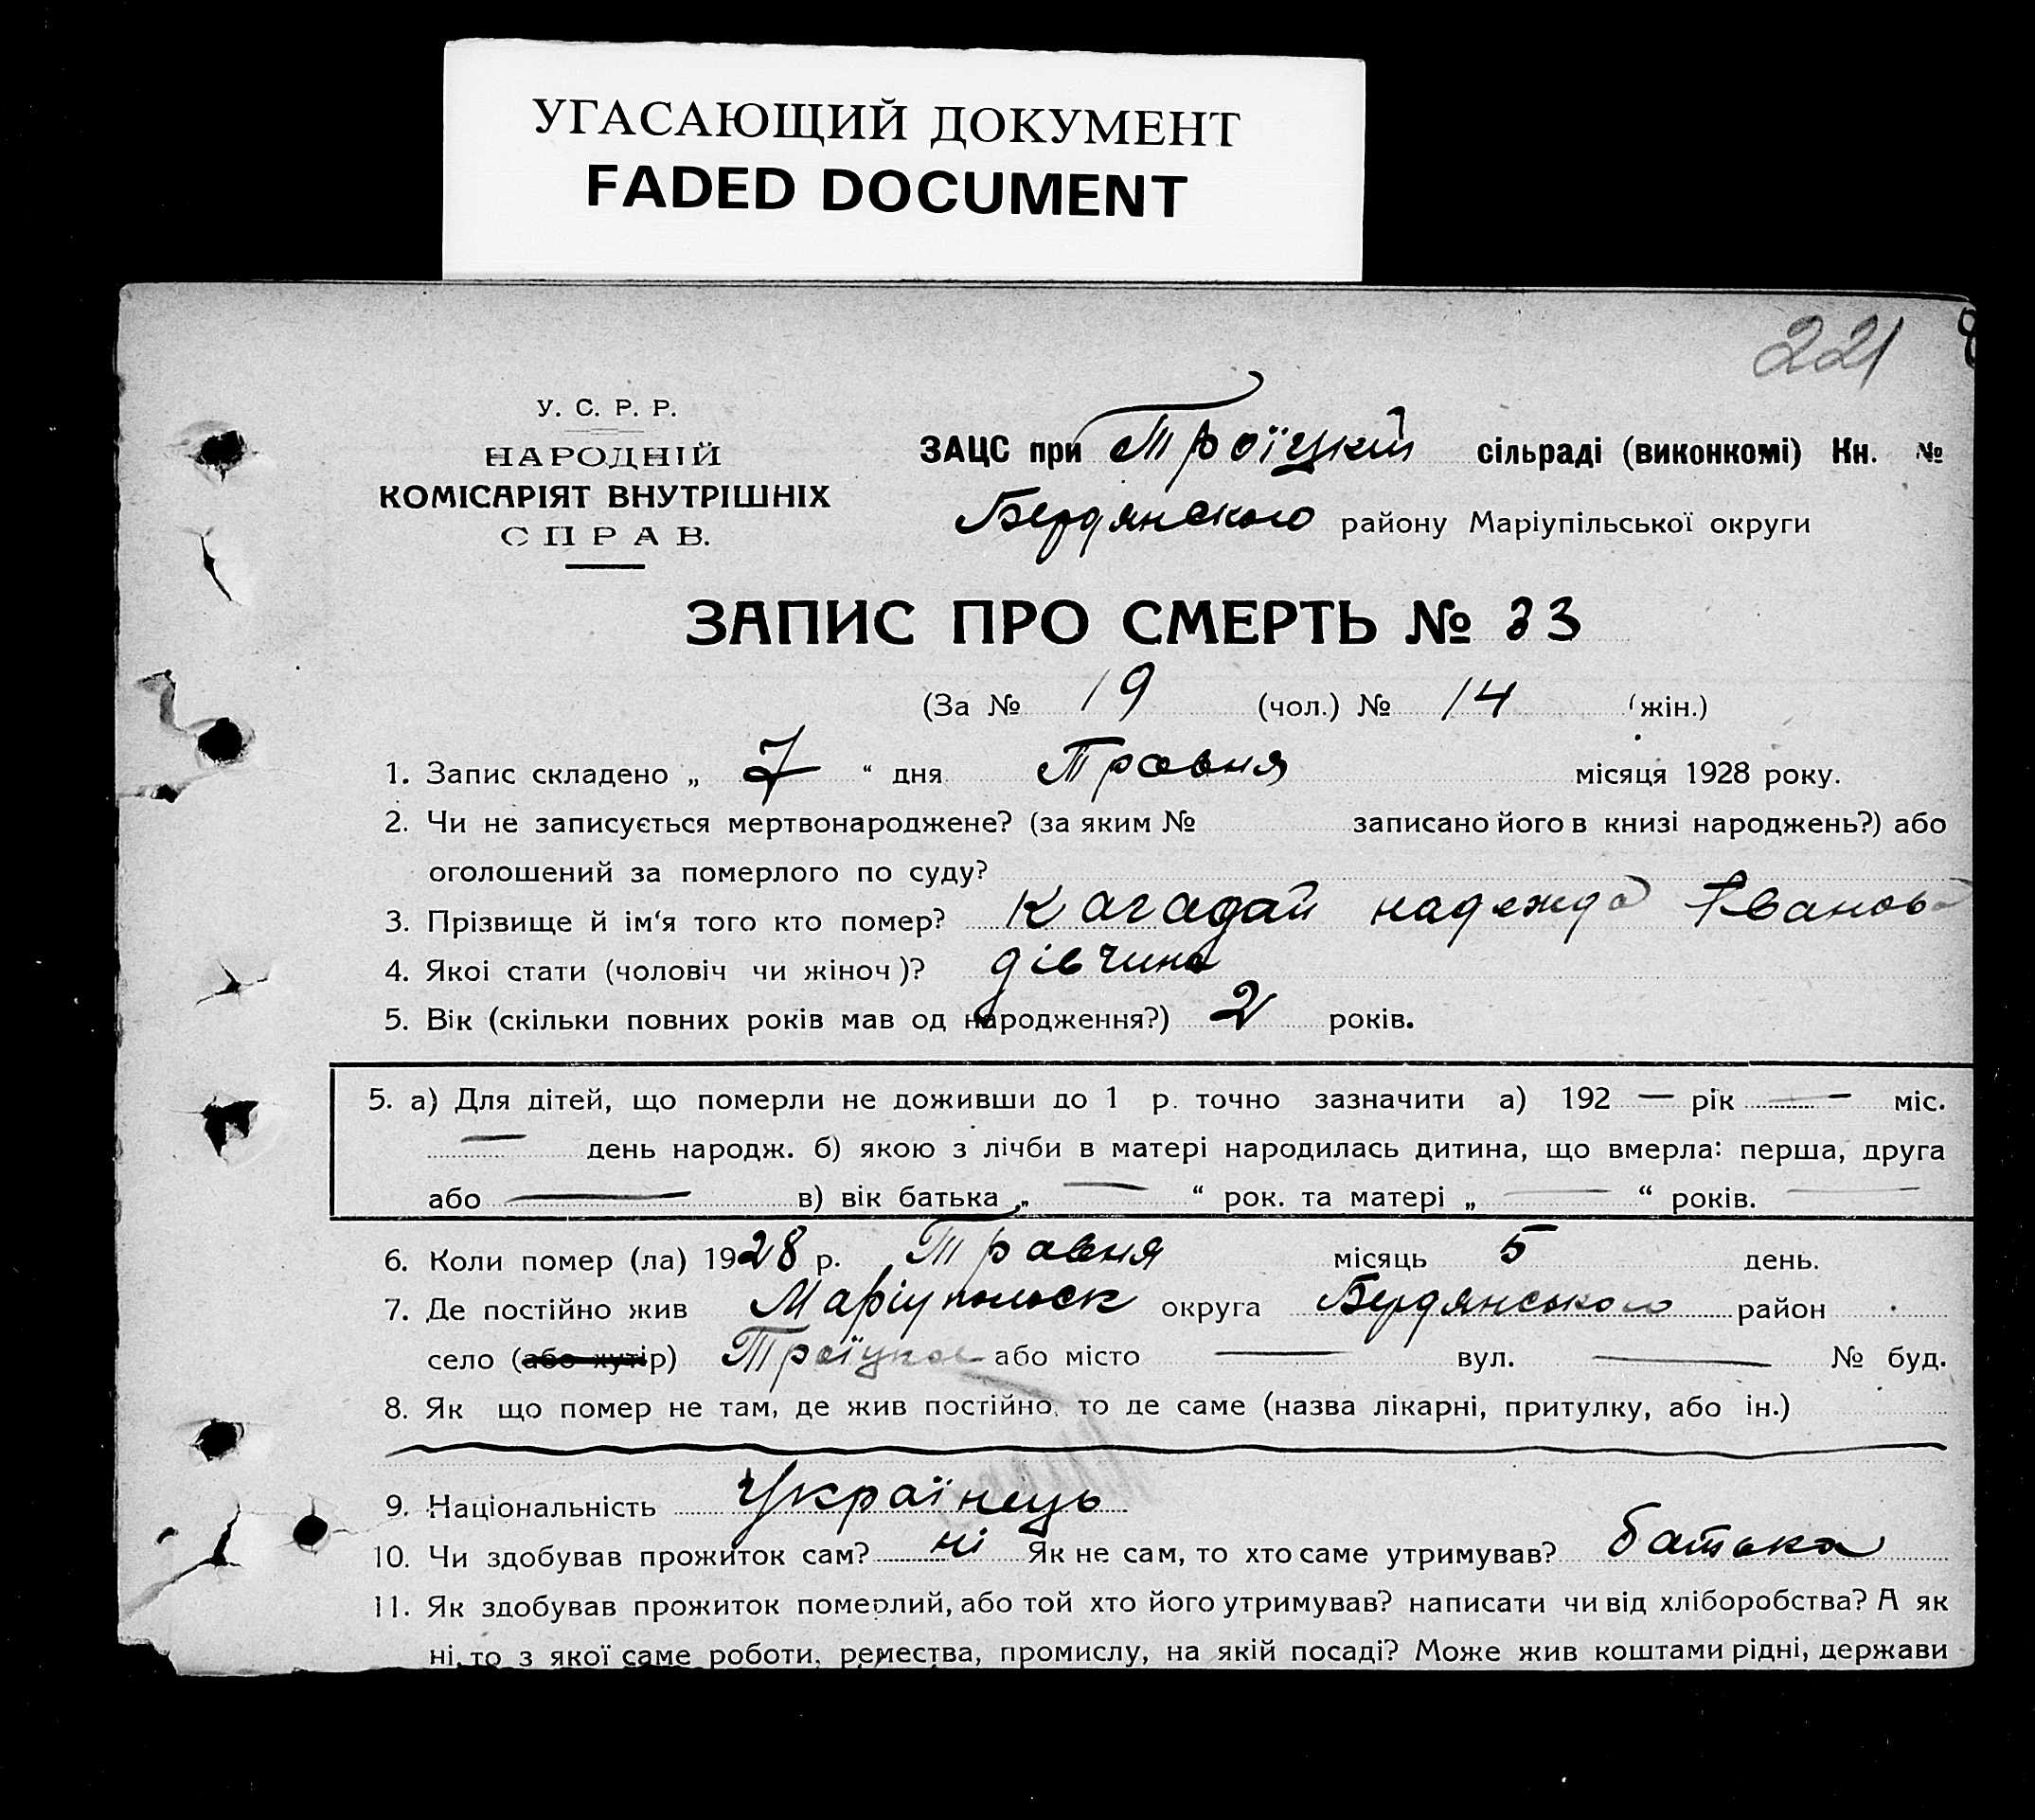 УГАСАЮЩИЙ ДОКУМЕНТ
FADED DOCUMENT
221
У. С. Р. Р.
НАРОДНІЙ
КОМІСАРІЯТ ВНУТРІШНІХ
СПРАВ.
ЗАЦС при Троїцкій сільраді (виконкомі) Кн. №
Бердянского району Маріупільської округи
ЗАПИС ПРО СМЕРТЬ № 33
(За № 19 (чол.) № 14 (жін.)
1. Запис складено „ 7 “ дня Травня місяця 1928 року.
2. Чи не записується мертвонароджене? (за яким № записано його в книзі народжень?) або
оголошений за померлого по суду?
3. Прізвище й ім‘я того кто помер? Кагадай надежда Іванова
4. Якоі стати (чоловіч чи жіноч)? дівчина
5. Вік (скільки повних років мав од народження?) 2 років.
5. а) Для дітей, що померли не доживши до 1 р. точно зазначити а) 192 — рік — міс.
— день народж. б) якою з лічби в матері народилась дитина, що вмерла: перша, друга
або — в) вік батька „ — “ рок. та матері „ — “ років. —
6. Коли помер (ла) 1928 р. Травня місяць 5 день.
7. Де постійно жив Маріупольск округа Бердянського район
село (або хутір) Троїцкое або місто — вул. — № буд.
8. Як що помер не там, де жив постійно, то де саме (назва лікарні, притулку, або ін.)
9. Національність Українець
10. Чи здобував прожиток сам? ні Як не сам, то хто саме утримував? батька
11. Як здобував прожиток померлий, або той хто його утримував? написати чи від хліборобства? А як
ні, то з якої саме роботи, ремества, промислу, на якій посаді? Може жив коштами рідні, держави